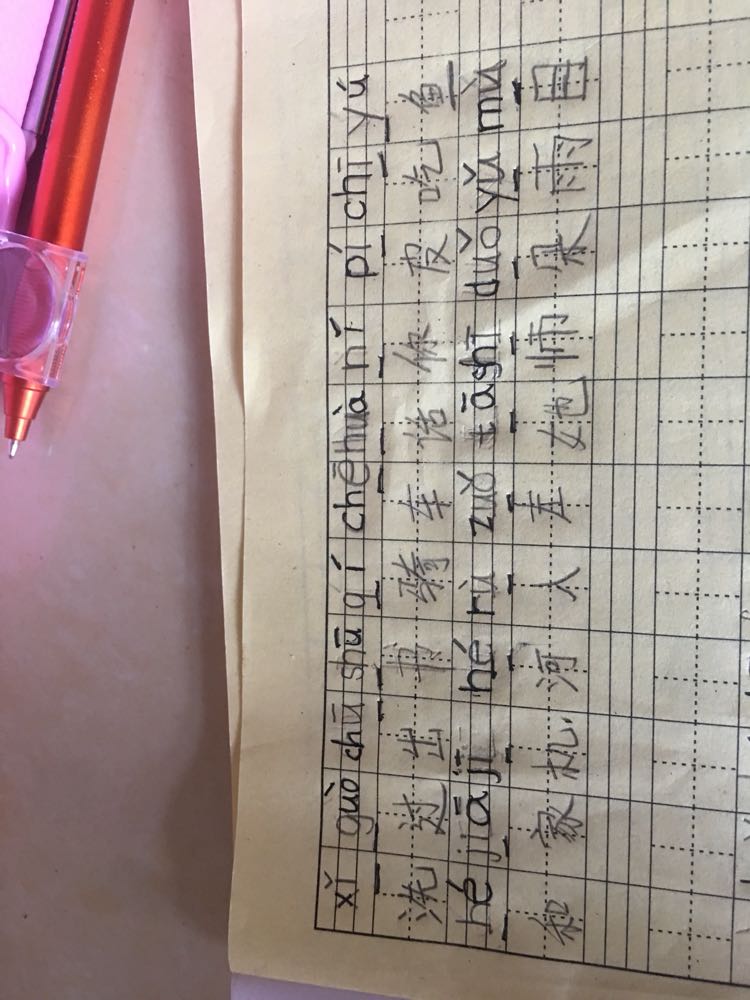 xǐ guò chū shū qí chē huà nǐ pí chī yú
洗 过 出 书 骑 车 话 你 皮 吃 鱼
hé jiā jī hé rù zuǒ tā shī duǒ yǔ mù
和 家 机 河 入 左 她 师 朵 雨 目